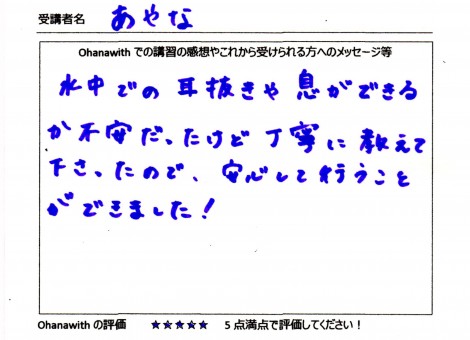 受講者名 あやな
Ohanawith での講習の感想やこれから受けられる方へのメッセージ等
水中での耳抜きや息ができる
か不安だったけど丁寧に教えて
下さったので、安心して行うこと
ができました!
Ohanawith の評価 ★★★★★ 5点満点で評価してください!